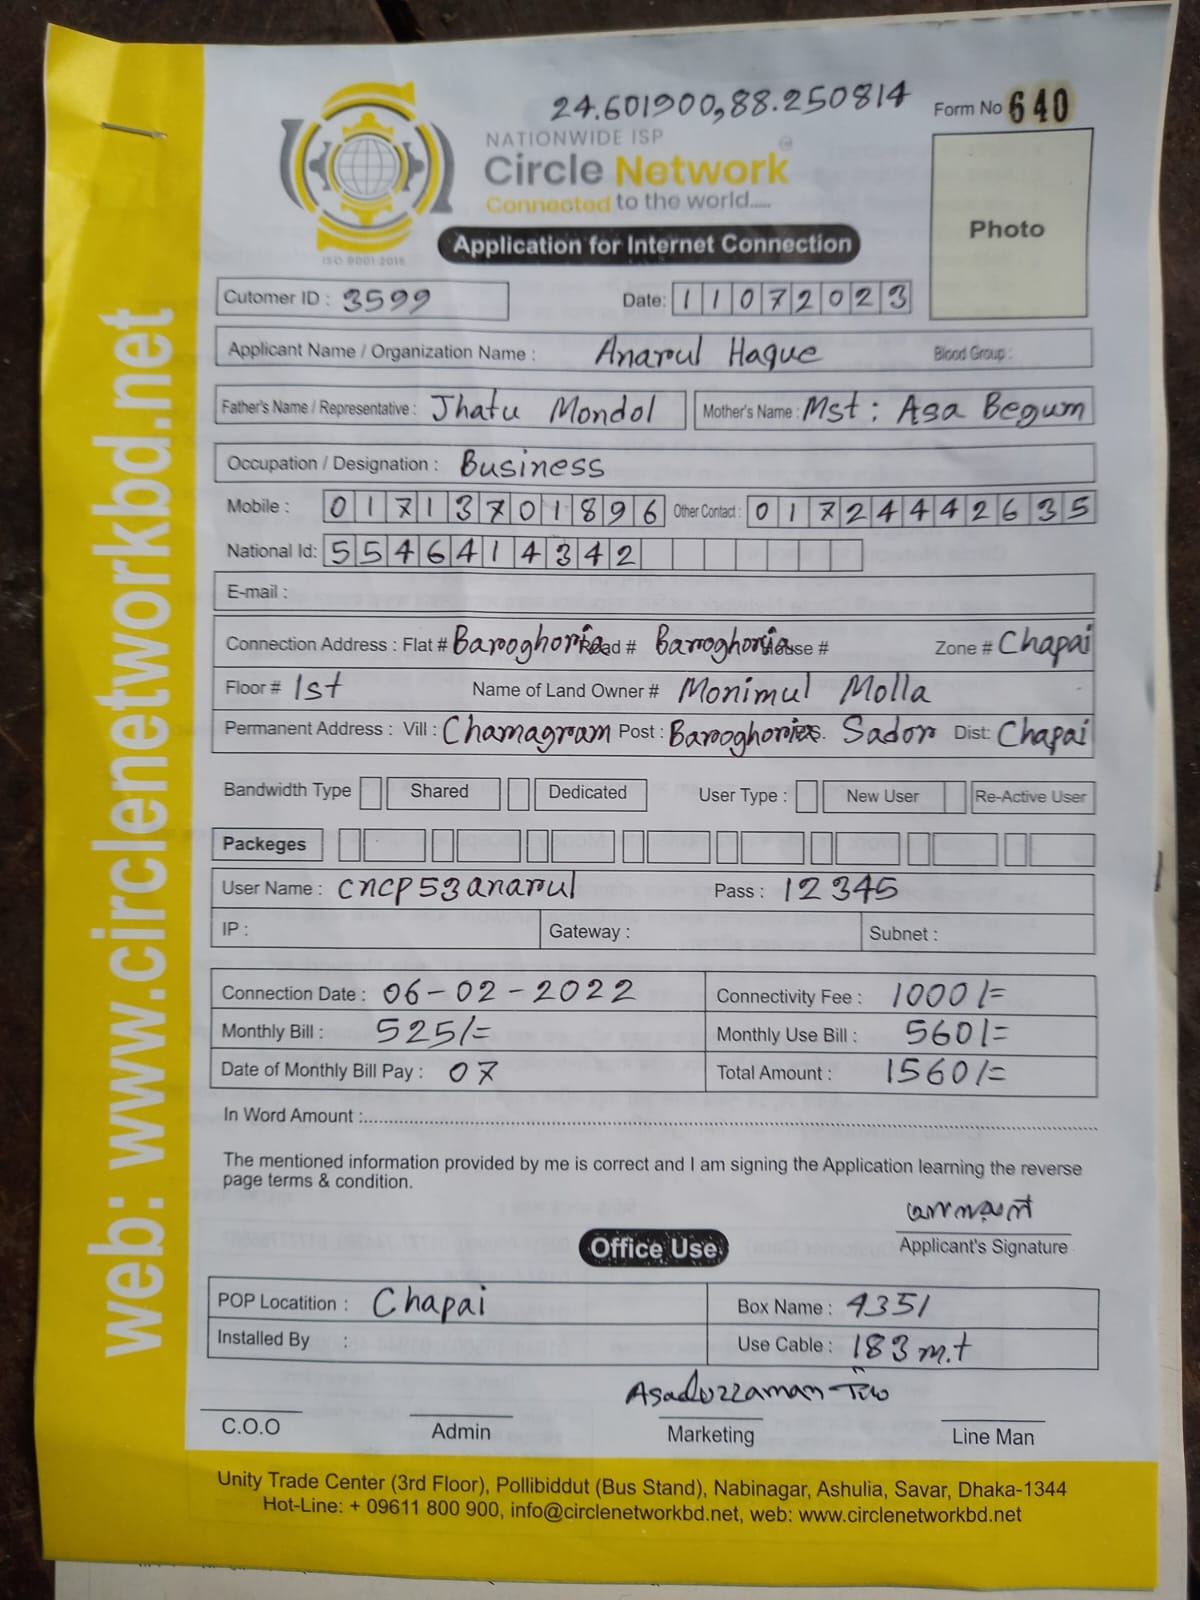 24.601900,88.250814
Form No 640
NATIONWIDE ISP
Circle Network
Connected to the world.....
ISO 9001:2015
Photo
Application for Internet Connection
Cutomer ID : 3599 Date: 11072023
Applicant Name / Organization Name : Anarul Haque Blood Group :
Father's Name / Representative : Jhatu Mondol Mother's Name : Mst : Asa Begum
Occupation / Designation : Business
Mobile : 01713701896 Other Contact : 01724442635
National Id: 5546414342
E-mail :
Connection Address : Flat # Baroghoria Road # Baroghoria House # Zone # Chapai
Floor # 1st Name of Land Owner # Monimul Molla
Permanent Address : Vill : Chamagram Post : Baroghoria P.S. Sador Dist: Chapai
Bandwidth Type Shared Dedicated User Type : New User Re-Active User
Packeges
User Name : cncp53anarul Pass : 12345
IP : Gateway : Subnet :
Connection Date : 06-02-2022 Connectivity Fee : 1000/=
Monthly Bill : 525/= Monthly Use Bill : 560/=
Date of Monthly Bill Pay : 07 Total Amount : 1560/=
In Word Amount :
The mentioned information provided by me is correct and I am signing the Application learning the reverse
page terms & condition.
Applicant's Signature
Office Use
POP Locatition : Chapai Box Name : 4351
Installed By : Use Cable : 183 m.t
Asaduzzaman
C.O.O Admin Marketing Line Man
Unity Trade Center (3rd Floor), Pollibiddut (Bus Stand), Nabinagar, Ashulia, Savar, Dhaka-1344
Hot-Line: + 09611 800 900, info@circlenetworkbd.net, web: www.circlenetworkbd.net
web: www.circlenetworkbd.net